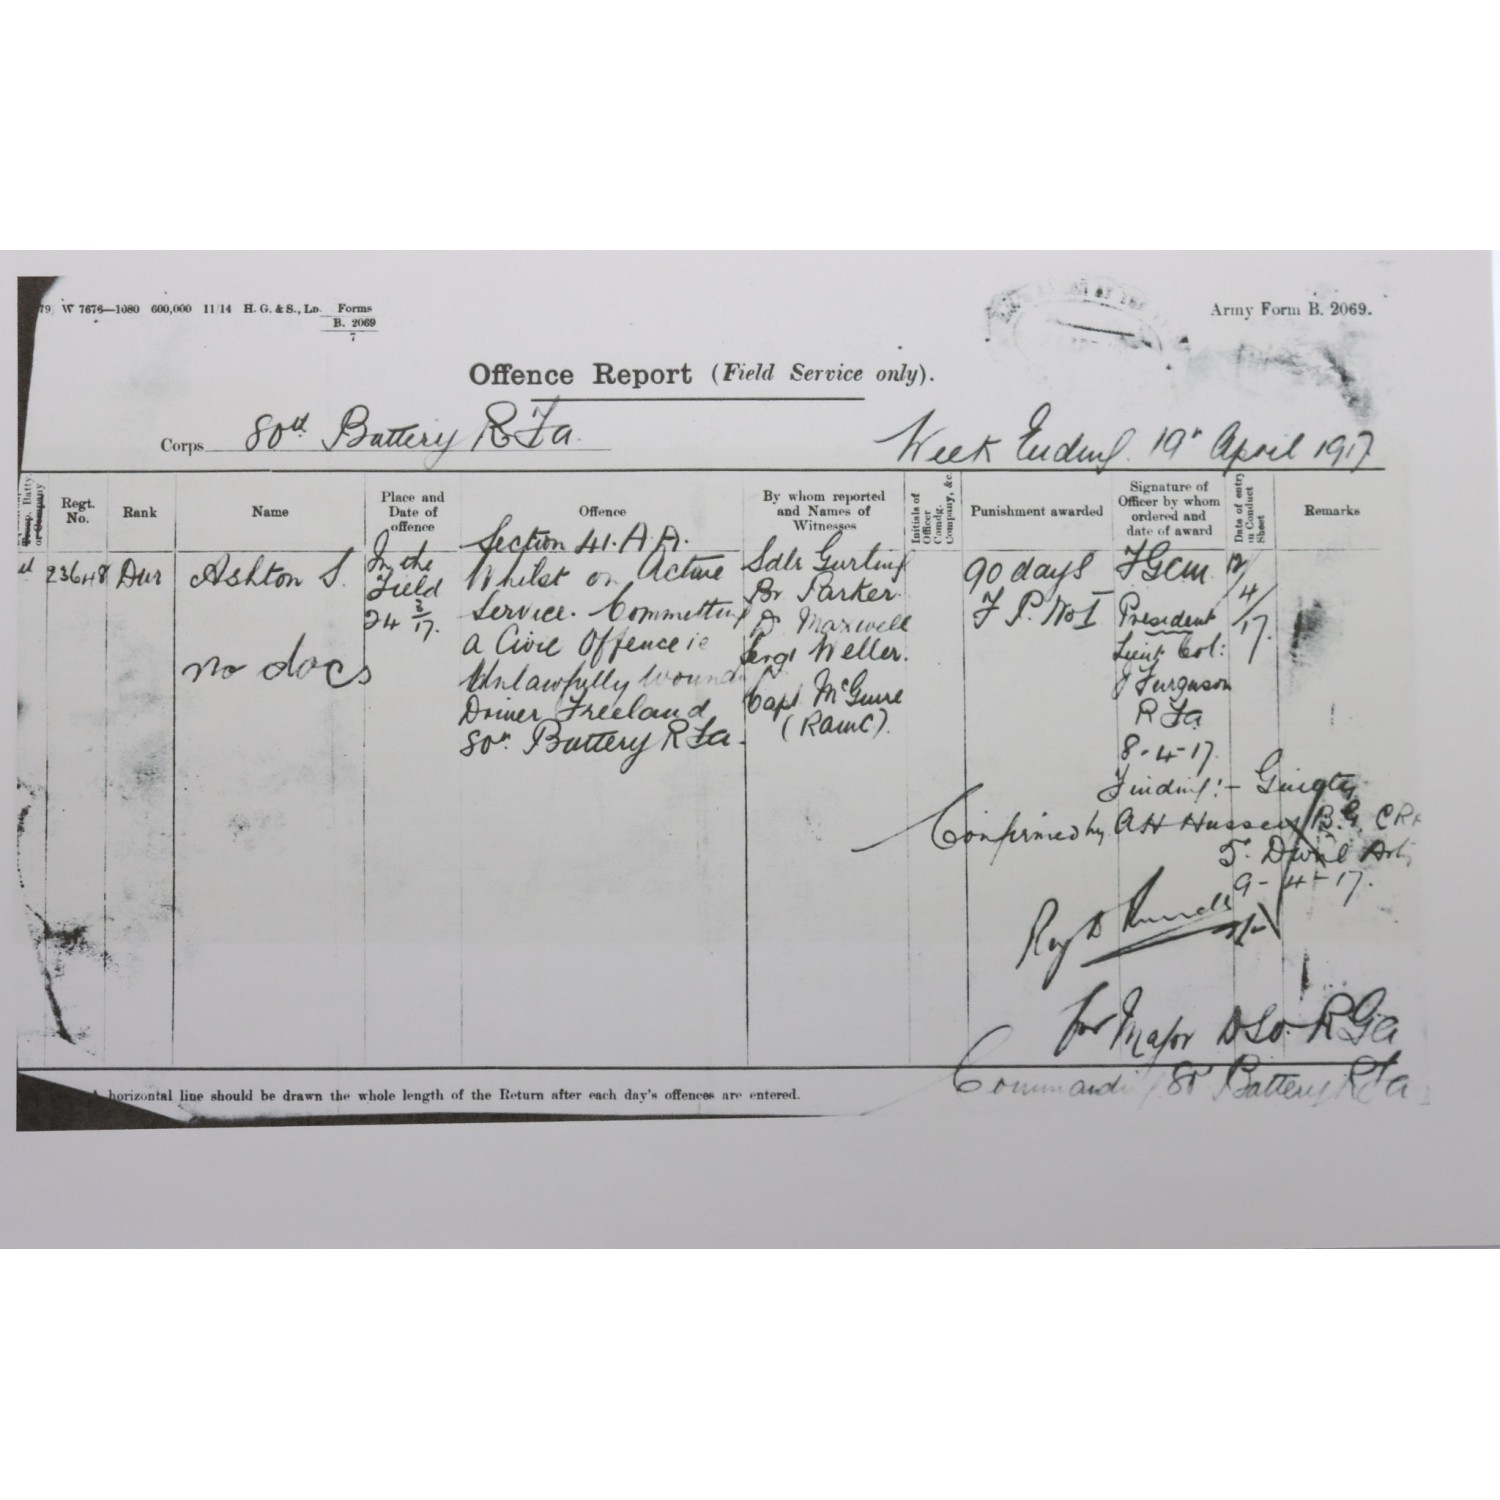 79) W 7676—1080 600,000 11/14 H. G. & S., Ld. Forms
B. 2069
7
Army Form B. 2069.
Offence Report (Field Service only).
Corps 80th Battery RFa.
Week Ending 19th April 1917
Batty or Company
Regt. No.
Rank
Name
Place and Date of offence
Offence
By whom reported and Names of Witnesses
Initials of Officer Comdg. Company, &c.
Punishment awarded
Signature of Officer by whom ordered and date of award
Date of entry in Conduct Sheet
Remarks
23648
Dvr
Ashton S.
no docs
In the
Field
24 2/17.
Section 41. A.A.
Whilst on Active
Service. Committing
a Civil Offence ie
Unlawfully Wound
Driver Freeland
80th Battery RFa.
Sdlr Gurling
Br Parker
D. Maxwell
Sergt Weller.
Capt McGuire
(RAMC).
90 days
F P. No I
FGCM.
President
Lieut Col:
J Ferguson
RFa
8-4-17.
Finding:- Guilty
12/4/17.
Confirmed by AH Hussey B.G. CRA
5. Divnl Art,
9-4-17.
Roy D
for Major DSO. RGa
Commanding 80th Battery RFa
A horizontal line should be drawn the whole length of the Return after each day's offences are entered.